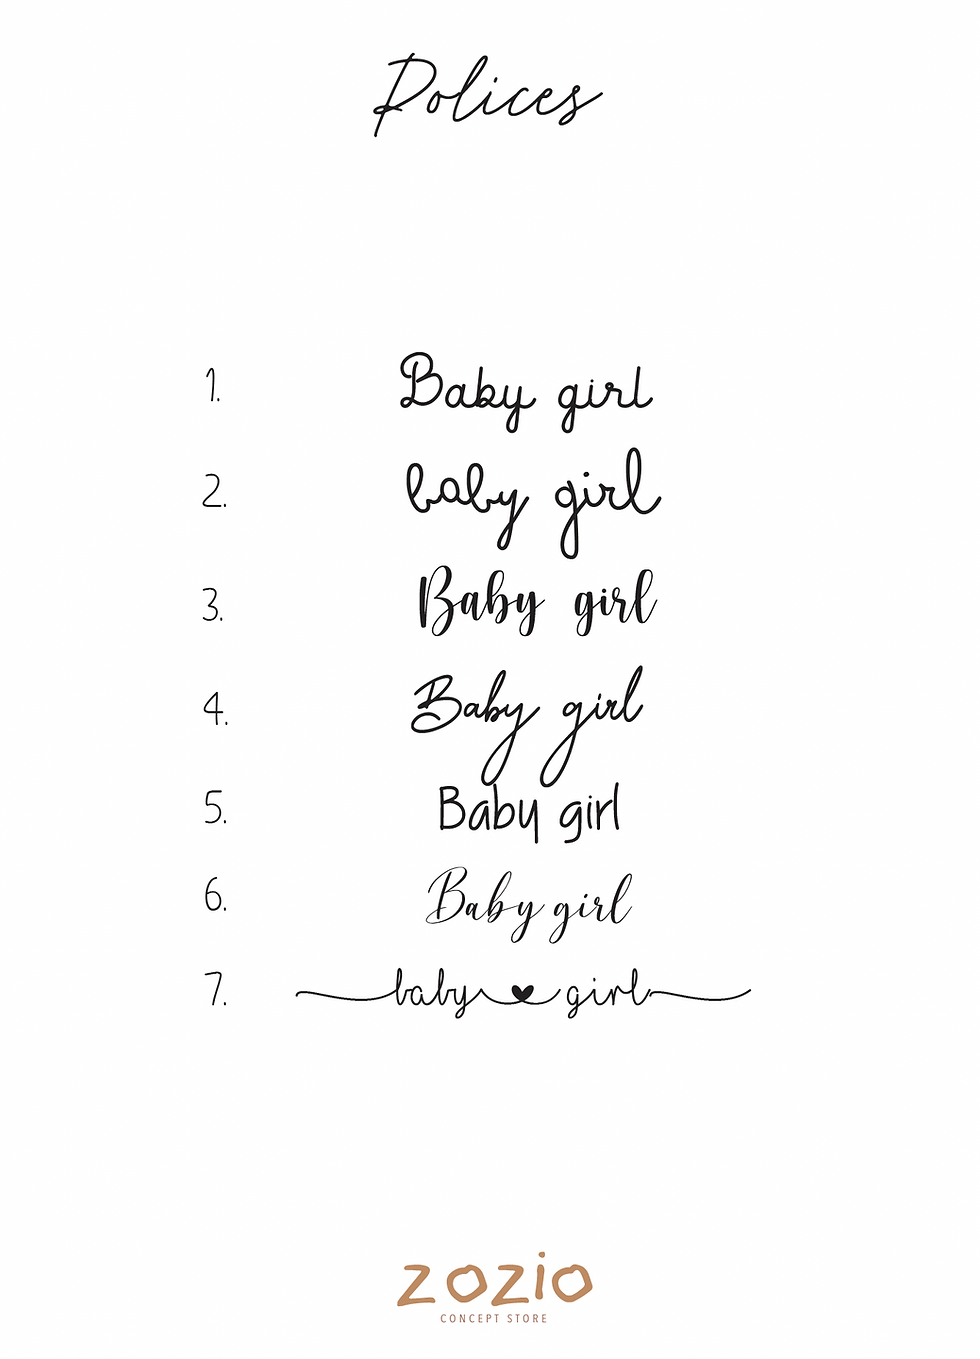 Polices
1. Baby girl
2. baby girl
3. Baby girl
4. Baby girl
5. Baby girl
6. Baby girl
7. baby girl
zozio
CONCEPT STORE